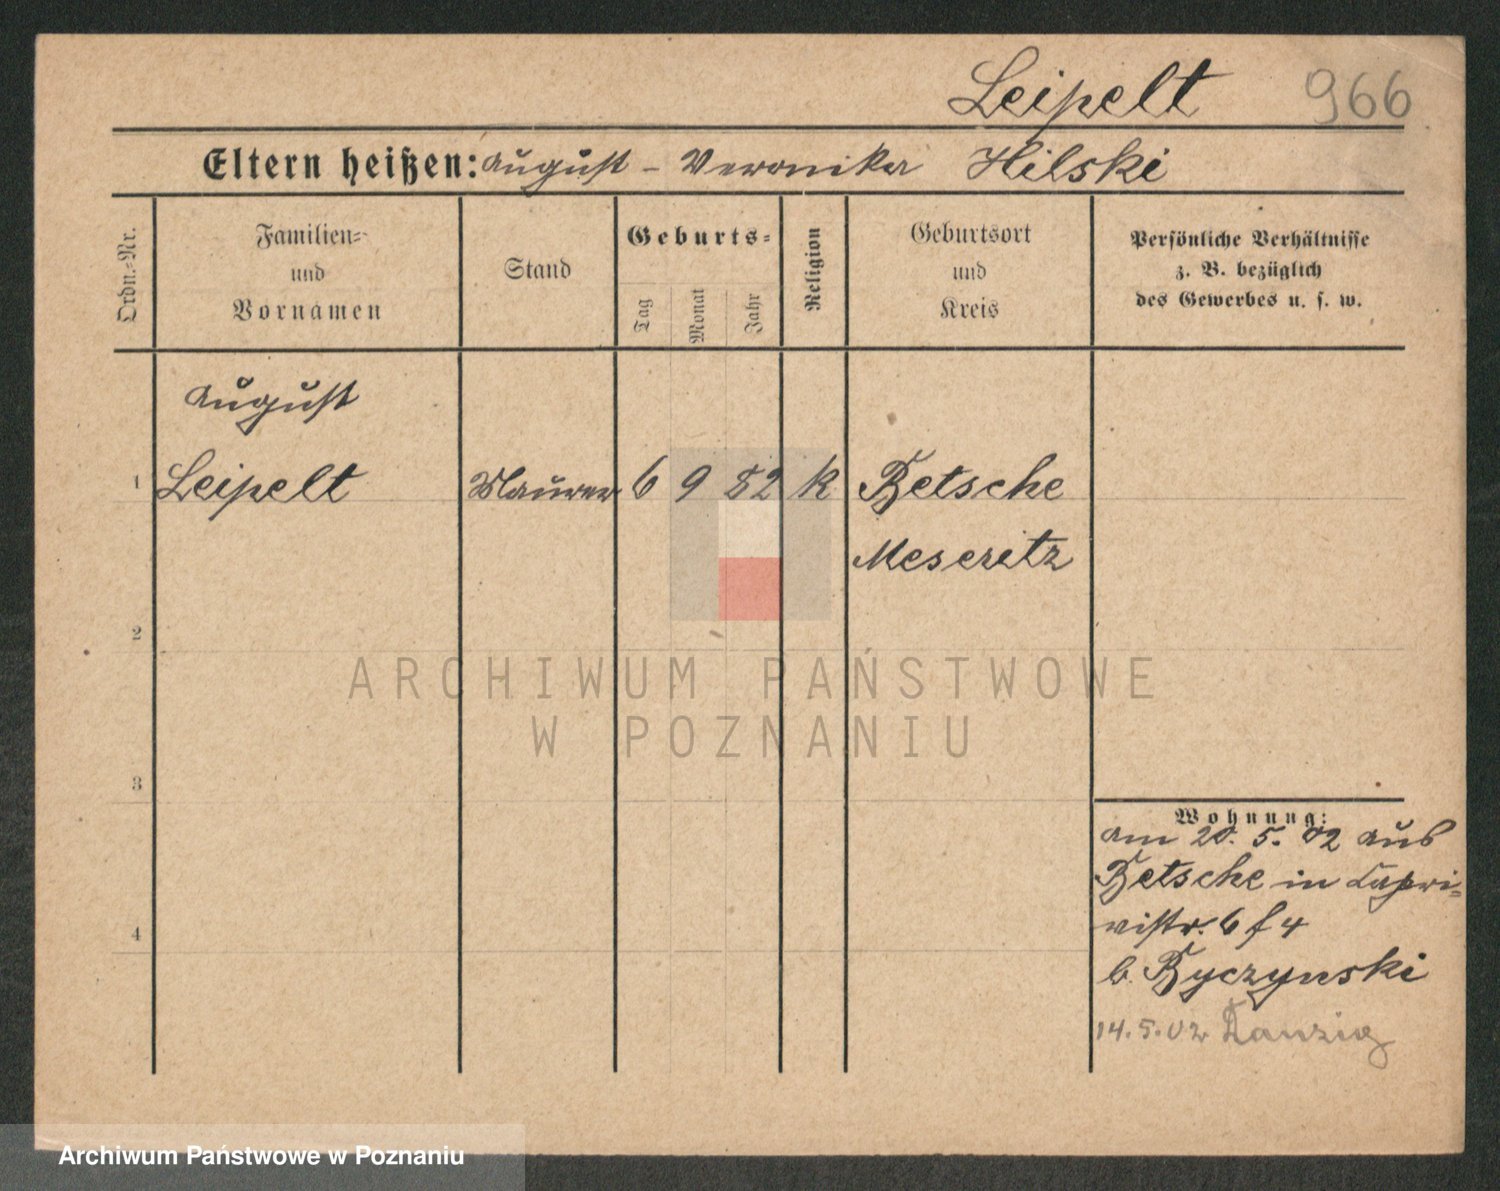 Leipelt 966
Eltern heißen: August - Veronika Hilski
Ordn.-Nr.
Familien-
und
Vornamen
Stand
Geburts-
Tag
Monat
Jahr
Religion
Geburtsort
und
Kreis
Persönliche Verhältnisse
z. B. bezüglich
des Gewerbes u. s. w.
August
1 Leipelt Maurer 6 9 82 k Betsche
Meseritz
2
3
4
Wohnung:
am 20. 5. 02 aus
Betsche in Capri-
vistr. 6 f 4
b. Byczynski
14. 5. 02 Danzig
ARCHIWUM PAŃSTWOWE
W POZNANIU
Archiwum Państwowe w Poznaniu